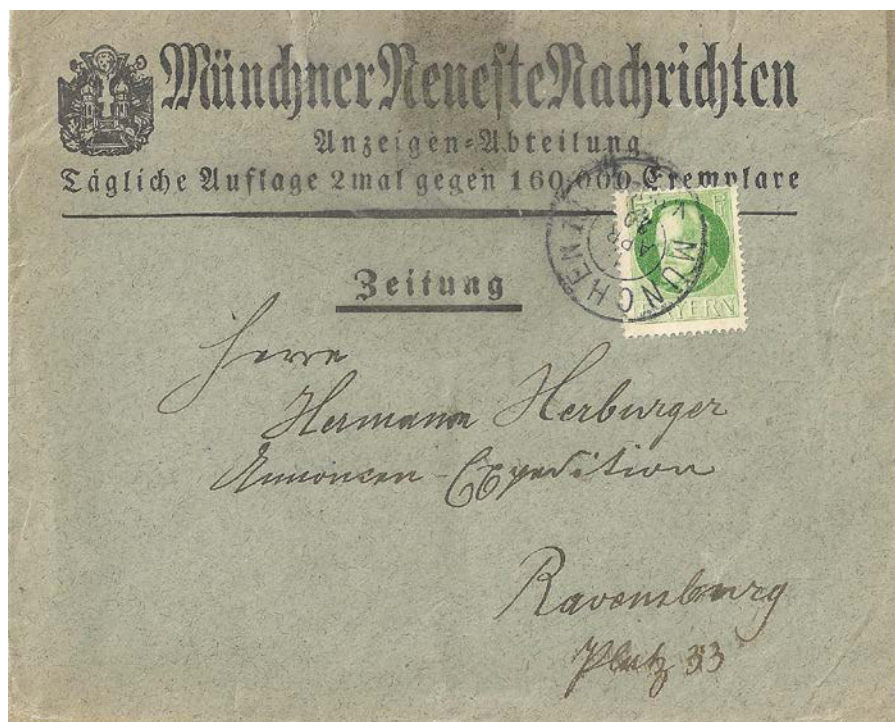 Münchner Neueste Nachrichten
Anzeigen-Abteilung
Tägliche Auflage 2mal gegen 160,000 Exemplare
MÜNCHEN
APR
BAYERN
Zeitung
Herrn
Hermann Herburger
Annoncen-Expedition
Ravensburg
Platz 33